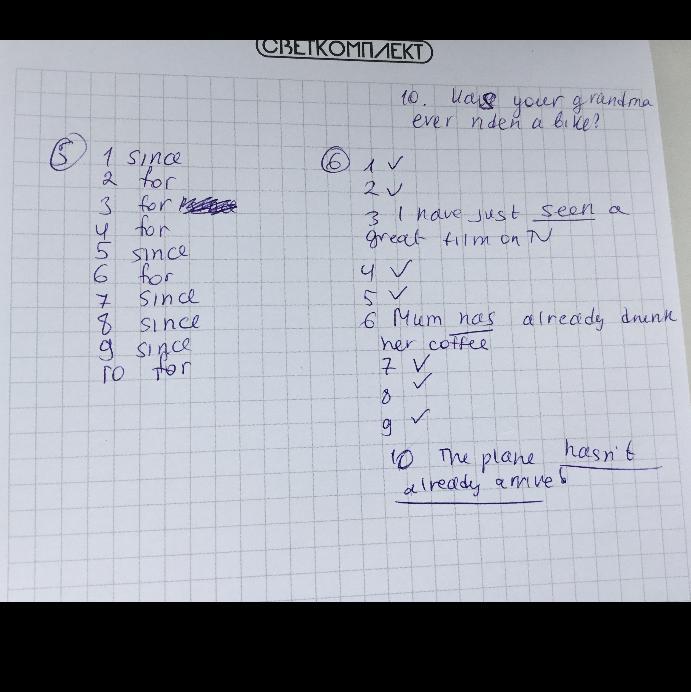 СВЕТКОМПЛЕКТ
10. Has your grandma
ever riden a bike?
5
1 since
2 for
3 for
4 for
5 since
6 for
7 since
8 since
9 since
10 for
6
1 ✓
2 ✓
3 I have just seen a
great film on TV
4 ✓
5 ✓
6 Mum has already drunk
her coffee
7 ✓
8 ✓
9 ✓
10 The plane hasn't
already arrive!